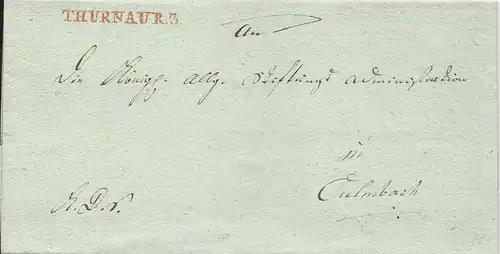 THURNAU R.3.
An
Die Königl. Allg. Stiftungs Administration
in
Culmbach
K. D. S.